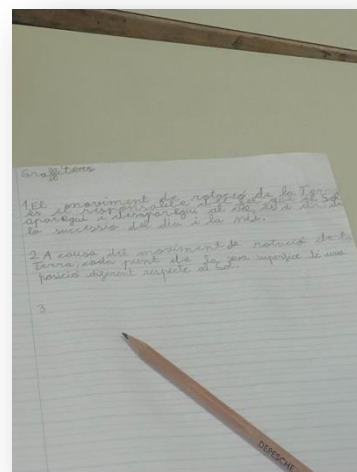 Graffiters
1 El moviment de rotació de la Terra
és el responsable del fet que el Sol
aparegui i desaparegui al cel, és a dir de
la successió del dia i la nit.
2. A causa del moviment de rotació de la
Terra, cada punt de la seva superfície té una
posició diferent respecte al sol.
3
DEPESCHE